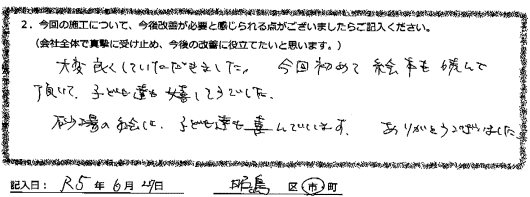 2．今回の施工について、今後改善が必要と感じられる点がございましたらご記入ください。
（会社全体で真摯に受け止め、今後の改善に役立てたいと思います。）
大変良くしていただきました。 今回初めて絵本も読んで
頂いて、子ども達も嬉しそうでした。
砂場の絵も、子ども達も喜んでいます。 ありがとうございました
記入日： R5 年 6 月 27日 島 区 市 町